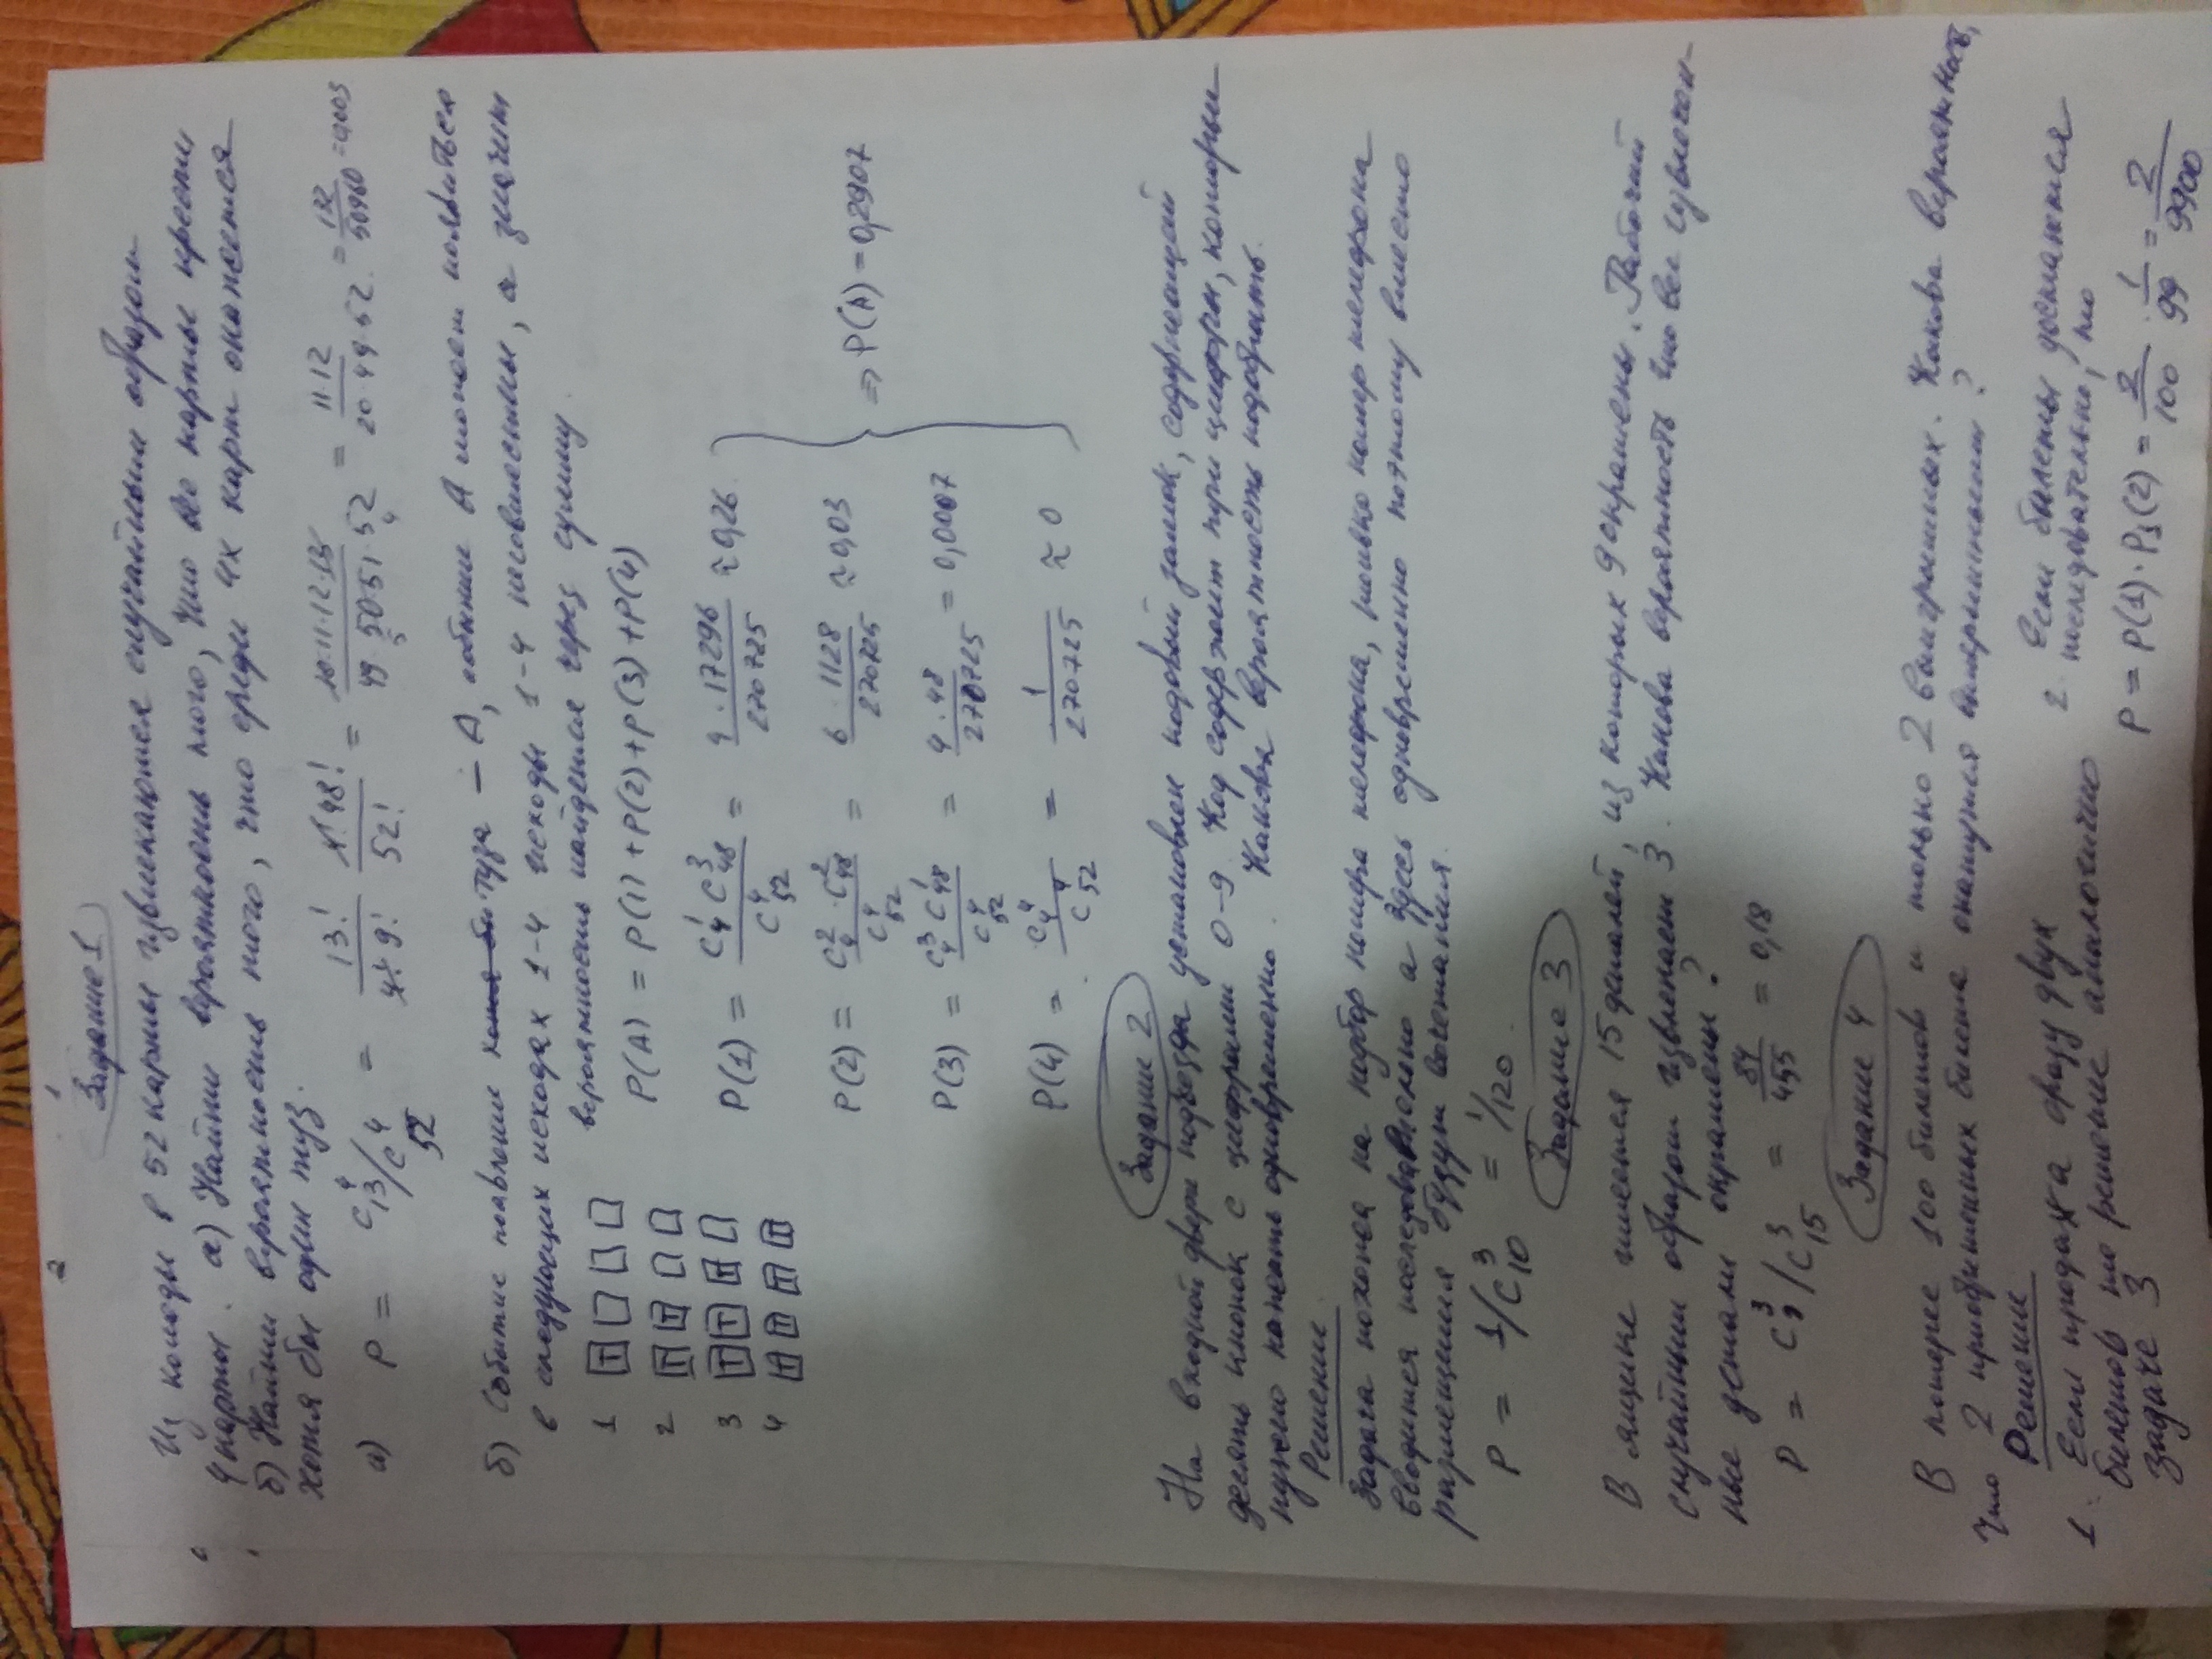 2
1
Задание 1
Из колоды в 52 карты извлекаются случайным образом
4 карты. а) Найти вероятность того, что все карты крести
б) Найти вероятность того, что среди их карт окажется
хотя бы один туз.
а) P = C⁴₁₃/C⁴₅₂ = 13!/4!9! · 4!48!/52! = 10·11·12·13/49·50·51·52 = 11·12/20·49·52 = 132/50960 = 0,003
б) Событие появление туза – А, событие А может появиться
в следующих исходах 1-4 исходы 1-4 несовместны, а значит
вероятность найдется через сумму.
P(A) = P(1)+P(2)+P(3)+P(4)
1 Т P(1) = C¹₄ C³₄₈/C⁴₅₂ = 4·17296/270725 ≈ 0,26
2 Т Т P(2) = C²₄·C²₄₈/C⁴₅₂ = 6·1128/270725 ≈ 0,03
3 Т Т Т P(3) = C³₄ C¹₄₈/C⁴₅₂ = 4·48/270725 = 0,0007
4 Т Т Т Т P(4) = C⁴₄/C⁴₅₂ = 1/270725 ≈ 0
=> P(A) = 0,2907
Задание 2
На входной двери подъезда установлен кодовый замок, содержащий
десять кнопок с цифрами 0-9. Код содержит три цифры, которые
нужно нажать одновременно. Какова вероятность подобрать.
Решение.
Задача похожа на набор номера телефона, только номер телефона
вводится последовательно а здесь одновременно потому вместо
размещения будут сочетания.
P = 1/C³₁₀ = 1/120.
Задание 3
В ящике имеется 15 деталей, из которых 9 окрашены. Рабочий
случайным образом извлекает 3. Какова вероятность что все извлечен-
ные детали окрашены?
P = C³₉/C³₁₅ = 84/455 = 0,18
Задание 4
В лотерее 100 билетов и только 2 выигрышных. Какова вероятность,
что 2 приобретенных билета окажутся выигрышными?
Решение
1. Если продажа сразу двух
билетов то решение аналогично
задаче 3
2. Если билеты достаются
последовательно, то
P = P(1)·P₁(2) = 2/100 · 1/99 = 2/9900